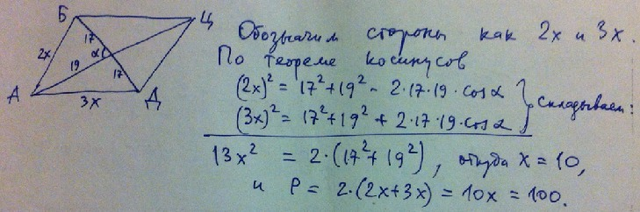 Б Ц
17
2х α
19 17
А 3х Д
Обозначим стороны как 2х и 3х.
По теореме косинусов
(2x)² = 17² + 19² - 2·17·19·cosα
(3x)² = 17² + 19² + 2·17·19·cosα } складываем:
13x² = 2·(17² + 19²), откуда x = 10,
и P = 2·(2x+3x) = 10x = 100.